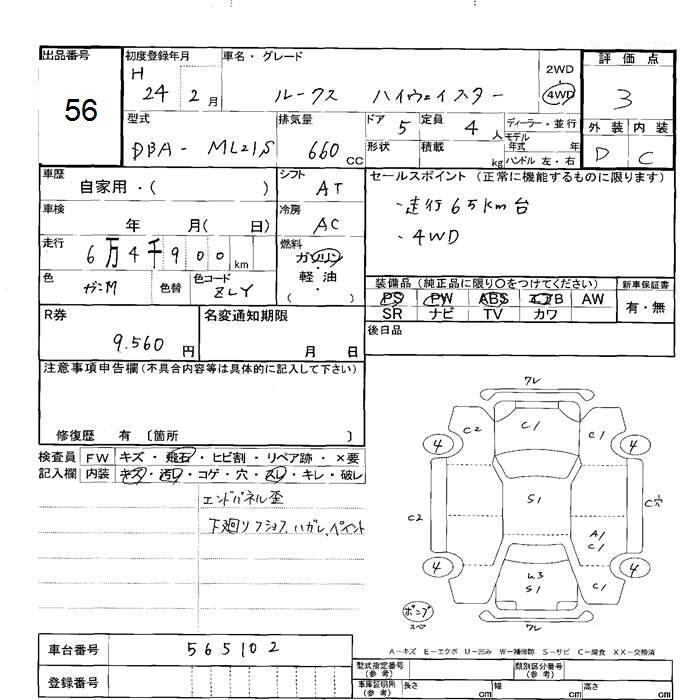 出品番号
56
初度登録年月
H
24 2月
車名・グレード
ルークス ハイウェイスター
2WD
4WD
評価点
3
外装 内装
D C
型式
DBA-ML21S
排気量
660 CC
ドア 5
定員 4人
形状
積載 kg
ディーラー・並行
モデル
年式 年
ハンドル 左・右
車歴
自家用・( )
シフト
AT
セールスポイント(正常に機能するものに限ります)
・走行65km台
・4WD
車検
年 月( 日)
冷房
AC
走行
6万4千900km
燃料
ガソリン
・
軽油
( )
色
ガンM
色替
色コード
ZLY
装備品(純正品に限り〇をつけてください)
PS PW ABS エアB AW
SR ナビ TV カワ
新車保証書
有・無
後日品
R券
9.560 円
名変通知期限
月 日
注意事項申告欄(不具合内容等は具体的に記入して下さい)
修復歴 有 〔箇所 〕
検査員
記入欄
FW キズ・飛石・ヒビ割・リペア跡・×要
内装 キズ・汚レ・コゲ・穴・スレ・キレ・破レ
エンドパネル歪
下廻りフショク、ハガレ、ペイント
ワレ
C2
C1
C1
4
4
C2
S1
C穴
A1
C1
4
4
U3
S1
C1
ポンプ
スペア
ワレ
A-キズ E-エクボ U-凹み W-補修跡 S-サビ C-腐食 XX-交換済
車台番号
565102
登録番号
型式指定番号
(参考)
類別区分番号
(参考)
車庫証明所
(参考)
長さ cm
幅 cm
高さ cm